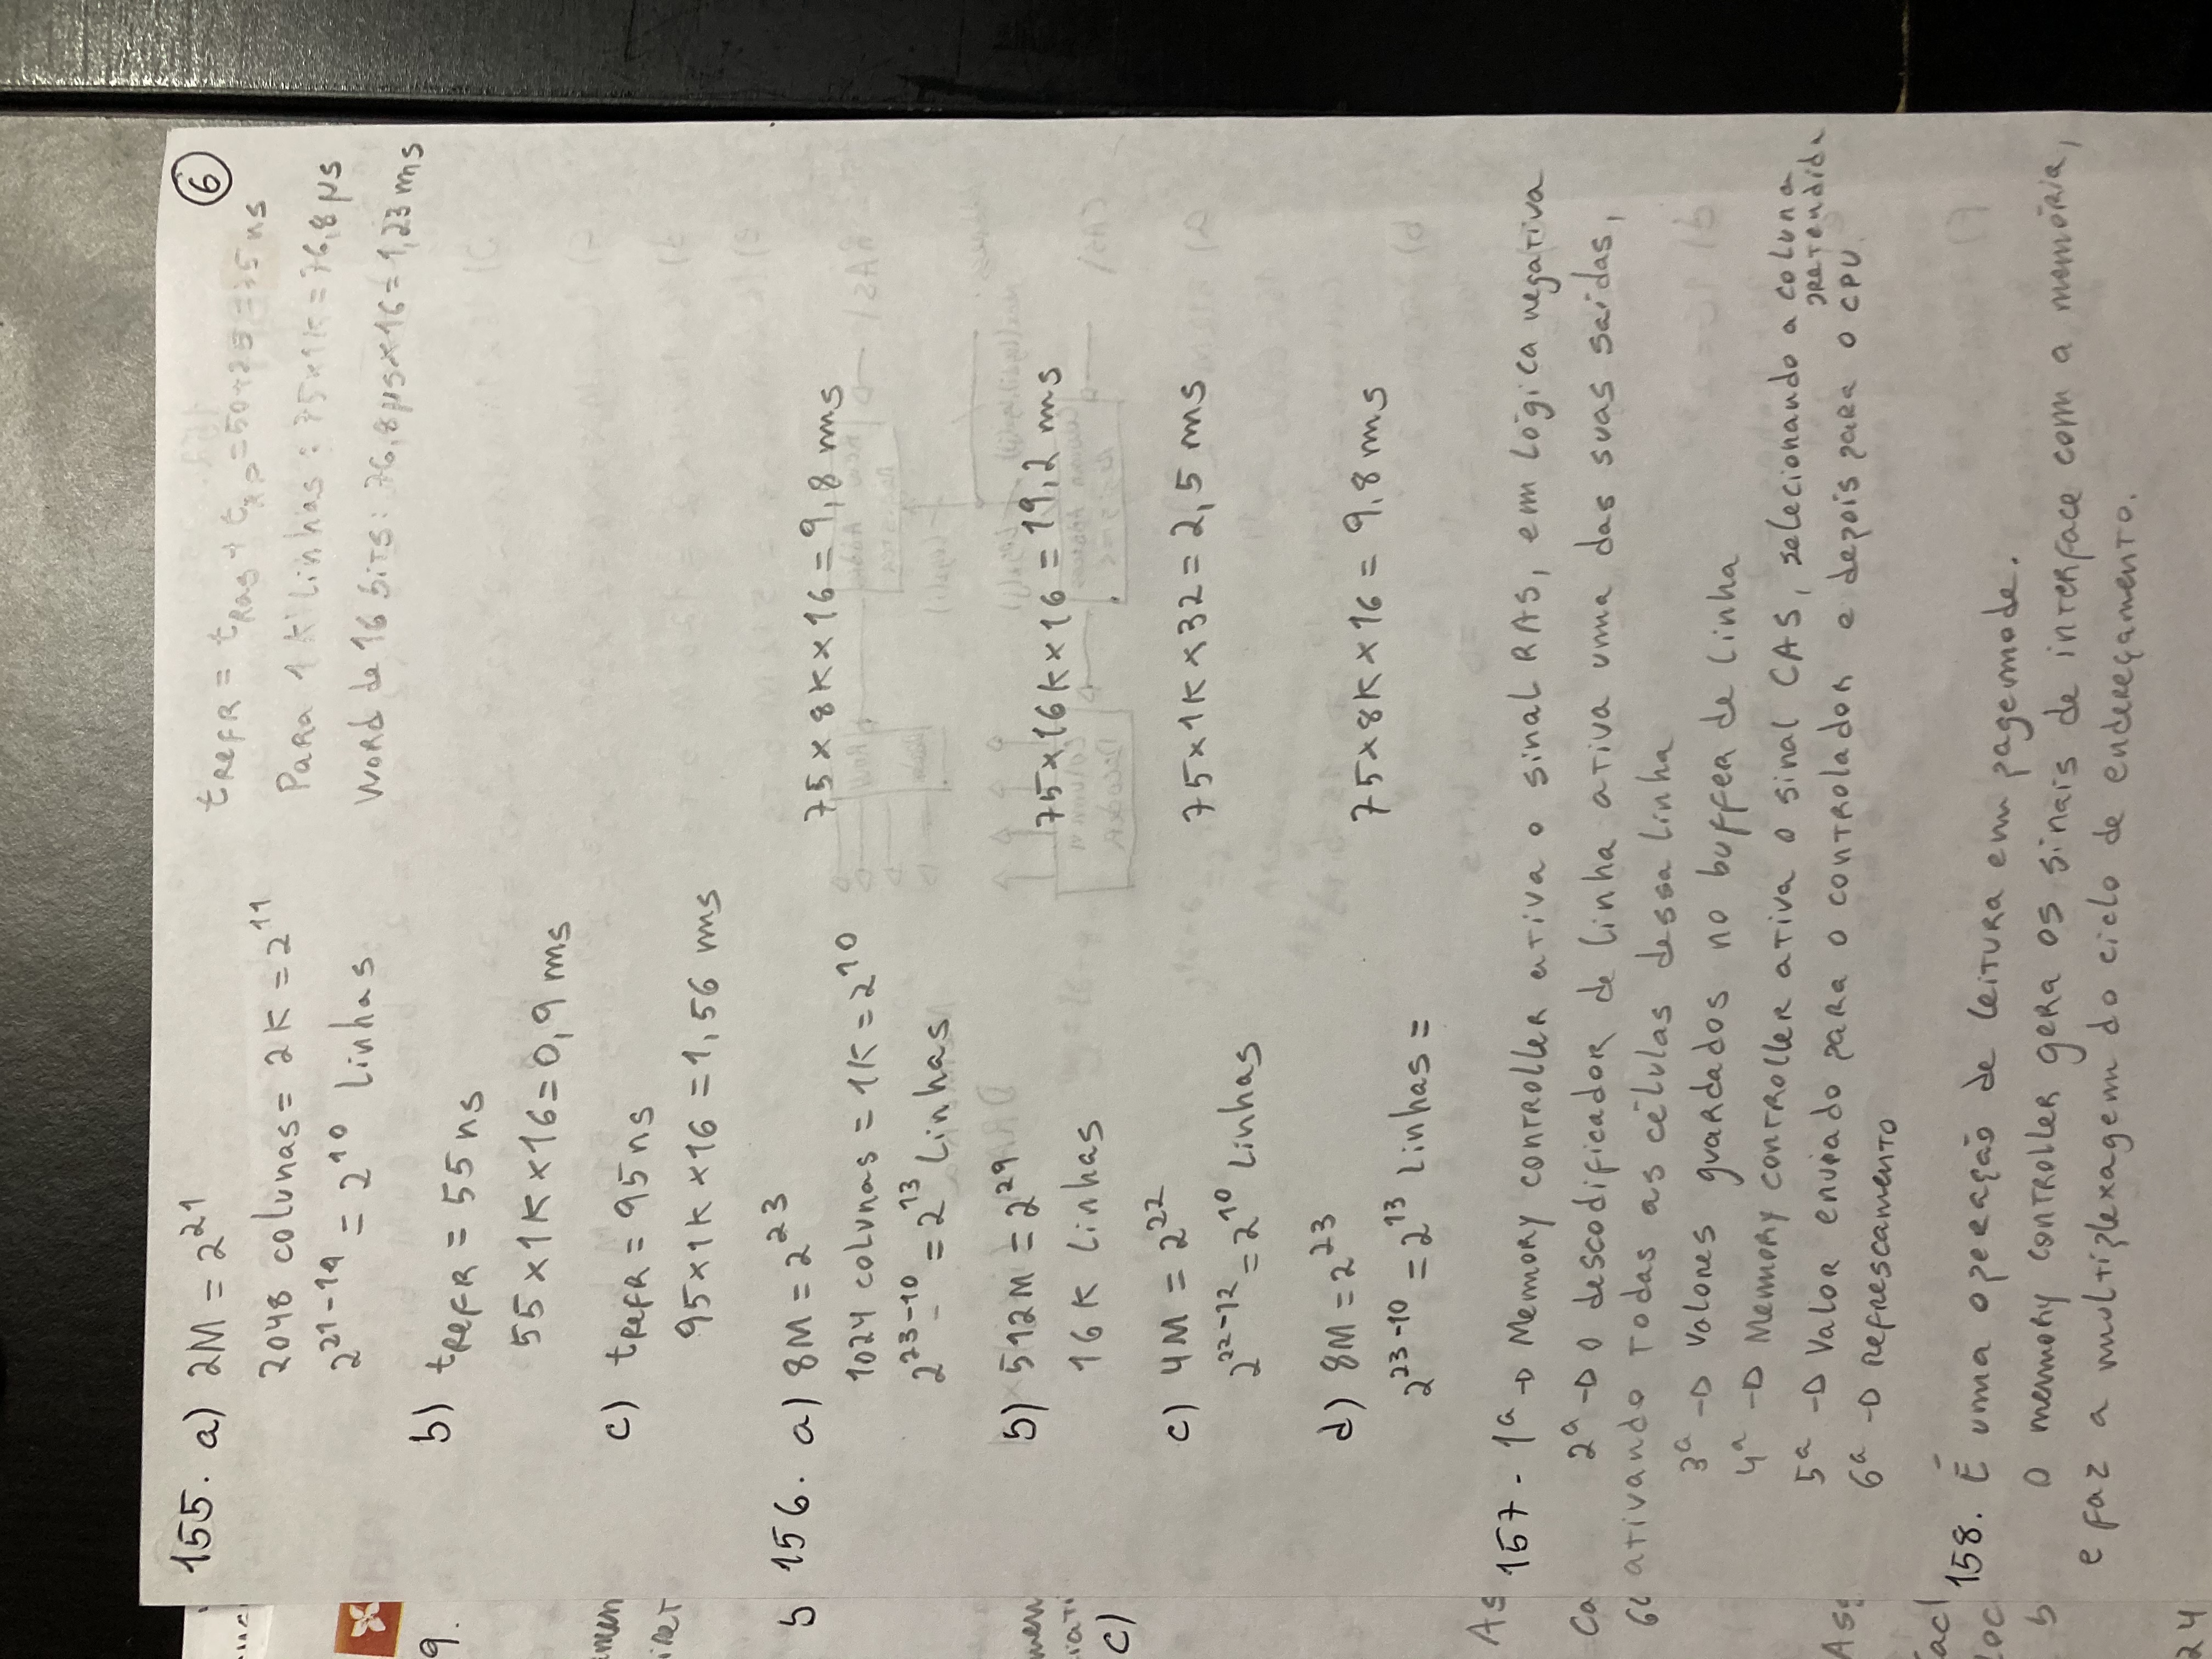 6
155. a) 2M = 2^21
tRefR = tRas + tRP = 50+25 = 75 ns
2048 colunas = 2K = 2^11
Para 1K linhas: 75×1K = 76,8 µs
2^21-11 = 2^10 linhas
Word de 16 bits: 76,8µs×16 = 1,23 ms
b) tRefR = 55 ns
55×1K×16 = 0,9 ms
c) tRefR = 95 ns
95×1K×16 = 1,56 ms
156. a) 8M = 2^23
75×8K×16 = 9,8 ms
1024 colunas = 1K = 2^10
2^23-10 = 2^13 linhas
b) 512M = 2^29
75×16K×16 = 19,2 ms
16K linhas
c) 4M = 2^22
75×1K×32 = 2,5 ms
2^22-12 = 2^10 linhas
d) 8M = 2^23
75×8K×16 = 9,8 ms
2^23-10 = 2^13 linhas =
157 - 1ª → Memory controller ativa o sinal RAS, em lógica negativa
2ª → O descodificador de linha ativa uma das suas saídas,
ativando todas as células dessa linha
3ª → Valores guardados no buffer de linha
4ª → Memory controller ativa o sinal CAS, selecionando a coluna
pretendida
5ª → Valor enviado para o controlador e depois para o CPU.
6ª → Refrescamento
158. É uma operação de leitura em pagemode.
O memory controller gera os sinais de interface com a memória,
e faz a multiplexagem do ciclo de endereçamento.
9.
b
c)
b
24